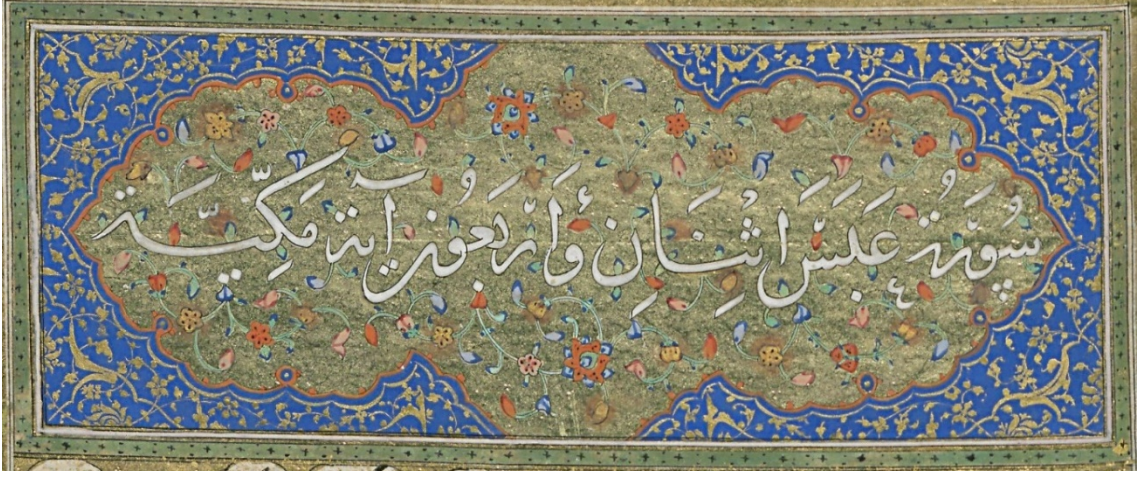 سُورَةُ عَبَسَ اثْنَانِ وَأَرْبَعُونَ آيَة مَكِّيَّة